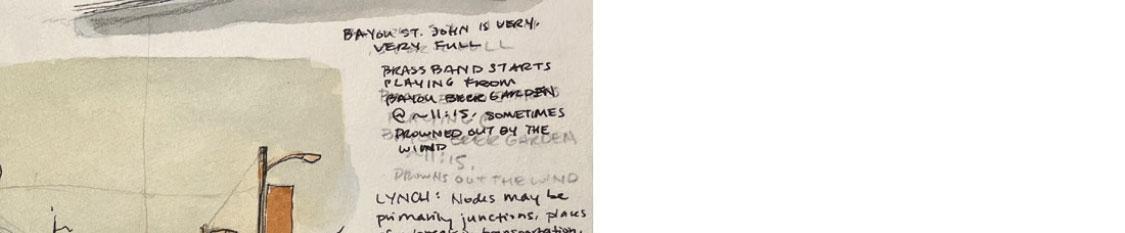 BAYOU ST. JOHN IS VERY,
VERY FULL
BRASS BAND STARTS
PLAYING FROM
BAYOU BEER GARDEN
@ ~11:15, SOMETIMES
DROWNED OUT BY THE
WIND
BEER GARDEN
~11:15,
DROWNS OUT THE WIND
LYNCH: Nodes may be
primarily junctions, places
transportation,